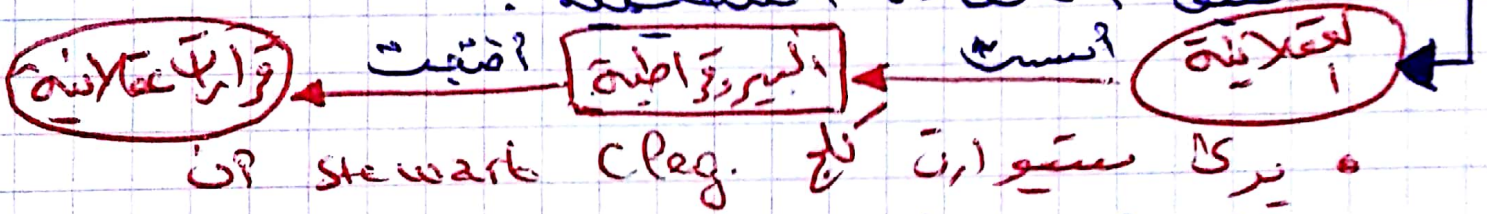 العقلانية أسست البيروقراطية أنتجت قرارات عقلانية
• يرى ستيوارت كلج Stewart Cleg. أن